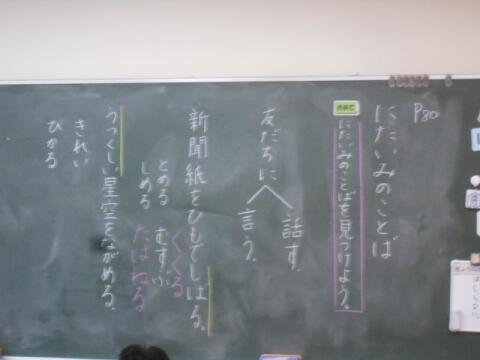 P80
にたいみのことば
めあて
にたいみのことばを見つけよう。
友だちに
話す。
言う。
新聞紙をひもでしばる。
とめる むすぶ
しめる くくる
たばねる
うつくしい星空をながめる。
きれい
ひかる